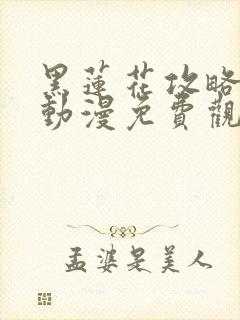 黑蓮花攻略
動漫免費觀
孟婆是美人